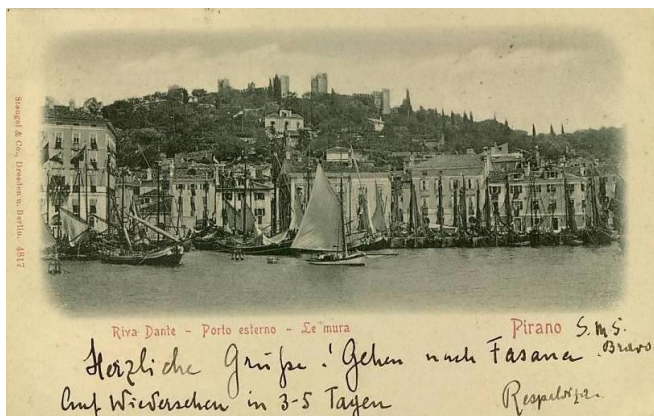 Stengel & Co., Dresden u. Berlin. 4817
Riva Dante - Porto esterno - Le mura
Pirano
S. M. S.
Herzliche Grüße! Gehen nach Fasana
Auf Wiedersehen in 3-5 Tagen